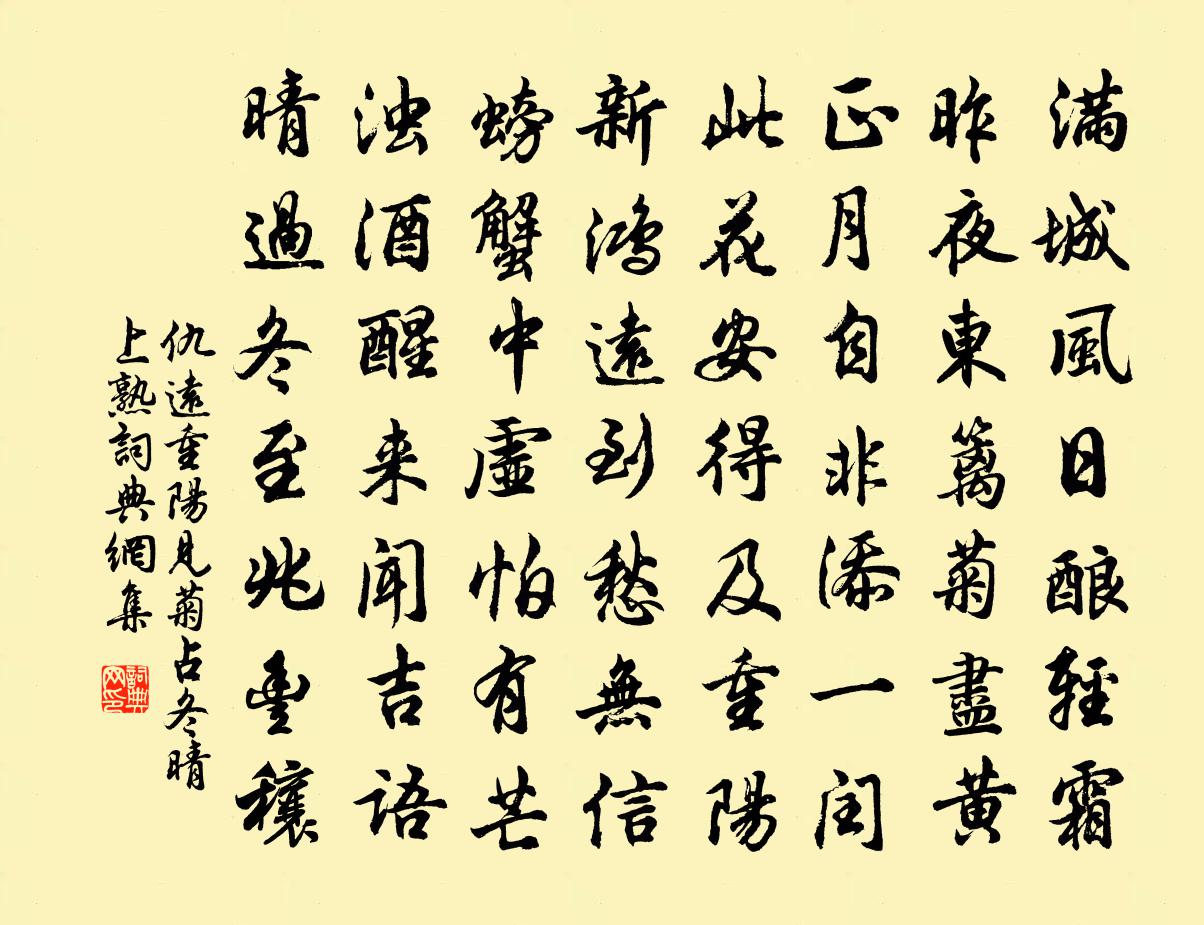 滿城風日釀輕霜
昨夜東籬菊盡黃
正月自非添一閏
此花安得及重陽
新鴻遠到愁無信
螃蟹中虛怕有芒
浊酒醒来聞吉語
晴過冬至兆豐穰
仇遠重陽見菊占冬晴
上熟詞典網集
詞典网印